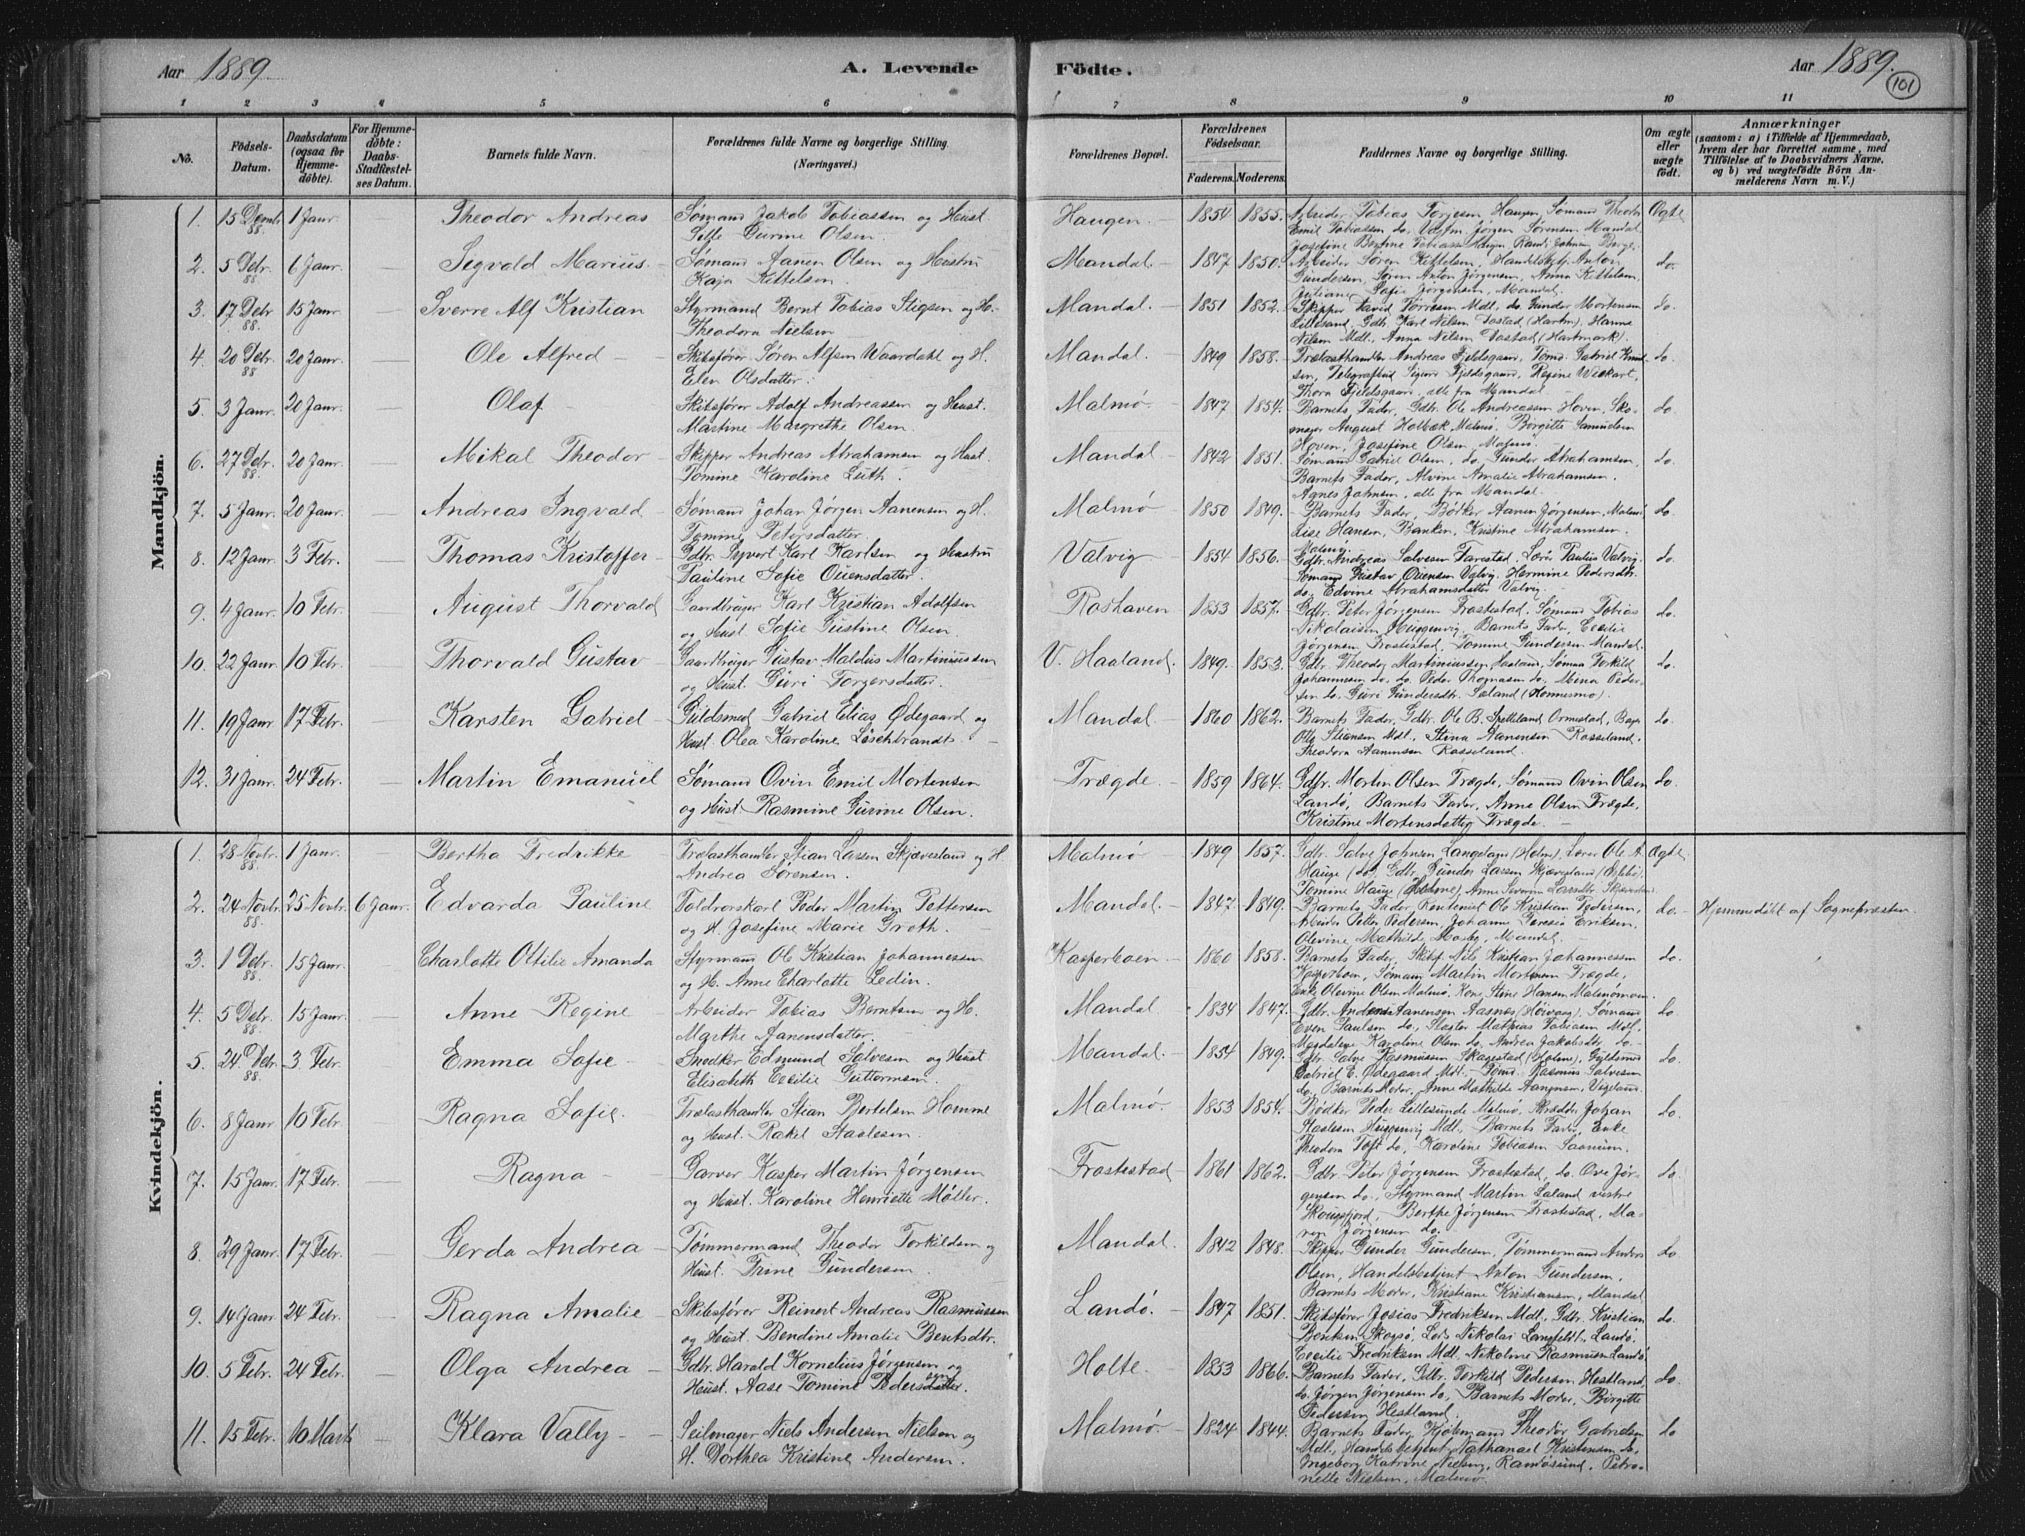 Aar 1889. A. Levende Födte. Aar 1889. 101
1 2 3 4 5 6 7 8 9 10 11
No. Födsels-Datum. Daabsdatum (ogsaa for Hjemmedöbte). For Hjemmedöbte: Daabs-Stadfæstelses Datum. Barnets fulde Navn. Forældrenes fulde Navne og borgerlige Stilling. (Næringsvei.) Forældrenes Bopæl. Forældrenes Födselsaar. Faderens. Moderens. Faddernes Navne og borgerlige Stilling. Om ægte eller uægte födt. Anmærkninger (saasom: a) i Tilfælde af Hjemmedaab, hvem der har forrettet samme, med Tilföielse af to Daabsvidners Navne, og b) ved uægtefödte Börn Anmelderens Navn m. V.)
Mandkjön.
1. 15 Decmbr. 88. 1 Janr. Theodor Andreas Sömand Jakob Tobiassen og Hust. Haugen. 1854 1855. Arbeider Tobias Torjesen Haugen, Sömand Theodor Ægte
Gurine Olsen. Emil Tobiassen do, Jörgen Sörensen Mandal
2. 5 Debr. 88 6 Janr. Sigvald Marius. Sömand Aanen Olsen og Hustru Mandal. 1847 1850. Arbeider Sören Kittelsen, Anton do.
Kaja Kittelsen. Gundersen, Sören Anton Jörgensen, Anna Kittelsen,
Juliane Sofie Jörgensen, Mandal.
3. 17 Debr 88 15 Janr. Sverre Alf Kristian Styrmand Bernt Tobias Stigsen og H. Mandal. 1851 1852. Skipper David Mdl. do. Gunder Mortensen do.
Theodora Nielsen Lillesand, Gdbr. Karl Nielsen (Hartm.), Hanna
Nilsen Mdl., Anna Nilsen (Hartmark).
4. 20 Debr. 88 20 Janr. Ole Alfred Skibsförer Sören Alfsen Waardahl og H. Mandal. 1849 1858. Trælasthandler Andreas Fjeldsgaar, Gabriel do.
Elen Olsdatter. Sigurd Fjeldsgaard, Regine
Thora Fjeldsgaar, alle fra Mandal
5. 3 Janr. 20 Janr. Olaf Skibsförer Adolf Andreassen og Hust. Malmö. 1847 1854. Barnets Fader, Gdbr. Ole Andreassen Hoven, Sko- do.
Martine Margrethe Olsen. mager August Holbæk Malmö, Borgitte Samuelsen
Hoven, Josefine Olsen, Malmö.
6. 27 Debr. 88 20 Janr. Mikal Theodor Skipper Andreas Abrahamsen og Hust. Mandal. 1842 1851. Sömand Gabriel Olsen, do. Gunder Abrahamsen, do.
Tomine Karoline Luth. Barnets Fader, Alvine Amalie Abrahamsen.
Agnes Johnsen, alle fra Mandal.
7. 5 Janr. 20 Janr. Andreas Ingvald Sömand Johan Jörgen Aanensen og H. Malmö 1850 1849. Barnets Fader, Bödker Aanen Jörgensen, Malmö do
Tomine Petersdatter. Lise Hansen, Banken, Kristine Abrahamsen.
Malmö.
8. 12 Janr. 3 Febr. Thomas Kristoffer Gdbr. Syvert Karl Karlsen og Hustru Valvig 1854 1856. Gdbr. Andreas Salvesen Farestad, Lærer Paulus Valvig, do.
Pauline Sofie Ouensdatter. Sömand Gustav Ouensen Valvig. Hermine Pedersdtr.
do, Edvine Abrahamsdatter Valvig
9. 4 Janr. 10 Febr. August Thorvald Gaardbruger Karl Kristian Adolfsen Roshaven 1853 1857. Gdbr. Peter Jörgensen Frostestad, Sömand Tobias do.
og Hust. Sofie Gustine Olsen. Nikolaisen Barnets Fader, Cecilie
Jörgensen Frostestad, Tomine Gundersen Mandal.
10. 22 Janr. 10 Febr. Thorvald Gustav Gaardbruger Gustav Maldus Martiniussen V. Haaland. 1849. 1853. Gdbr. Theodor Martiniussen Sömand Torkild do.
og Hust. Guri Torgersdatter. Johannesen do. do. Peder Thomasen do. Mina Peder-
sen do. Guri Gundersdtr. (Homesmo).
11. 19 Janr. 17 Febr. Karsten Gabriel Guldsmed Gabriel Elias Ødegaard og Mandal 1860 1862. Barnets Fader, Gdbr. Ole B. Spilleland Ormestad, do.
Hust. Olea Karoline Löschbrandt. Otto Stiansen Mdl., Stina Aanensen Rosseland.
Theodora Aanensen Rosseland.
12. 31 Janr. 24 Febr. Martin Emanuel Sömand Ovin Emil Mortensen Trægde. 1859 1864. Gdbr. Morten Olsen Trægde, Sömand Ovin Olsen do
og Hust. Rasmine Gurine Olsen. Landö, Barnets Fader, Anne Olsen Trægde,
Kristine Mortensdatter Trægde.
Kvindekjön.
1. 28 Novbr. 88. 1 Janr. Bertha Fredrikke Trælasthandler Stian Lassen Skjævesland og H. Malmö 1849 1857. Gdbr. Salve Johnsen (Holme), Lærer Ole A. Ægte
Andrea Sörensen. Hauge (do), Gdbr. Gunder Lassen Skjævesland
Tomine Hauge (Holme), Anne Severine Larsdtr.
2. 24 Novbr. 88. 25 Novbr. 6 Janr. Edvarda Pauline Toldrorskarl Peder Martin Pettersen Mandal. 1847. 1849. Barnets Fader, Ole Kristian Pedersen, do. Hjemmedöbt af Sognepræsten.
og H. Josefine Marie Groth. Arbeider Petter Pedersen, Johanne Teresia Eriksen,
Olevine Mathilde Mandal
3. 1 Debr. 88. 15 Janr. Charlotte Ottilie Amanda Styrmand Ole Kristian Johannessen Kasperboen 1860 1858. Barnets Fader, Nils Kristian Johannessen do.
og H. Anne Charlotte Ledin. Kasperboen, Sömand Martin Mortensen Trægde,
Enke Olevine Olsen Malmö, Kone Stine Hansen
4. 5 Debr. 88. 15 Janr. Anne Regine Arbeider Tobias Berntsen og H. Mandal 1834 1847. Gdbr. Anders Aanensen Aasnes Sömand do
Marthe Aanensdatter. Even Paulsen do, Mathias Tobiasen Mdl.
Magdalene Karoline Olsen do, Andrea Jakobsdtr. do.
5. 24 Debr. 88. 3 Febr. Emma Sofie Snedker Edmund Salvesen og Hust Mandal. 1854 1849. Gdbr. Salve Rasmussen Skagestad (Holme), Guldsmed do.
Elisabeth Cecilie Guttormsen. Gabriel E. Ødegaard Mdl. Rasmus Salvesen
do, Barnets Moder, Anne Mathilde Aanensen, Vigeland
6. 8 Janr 10 Febr. Ragna Sofie. Trælasthandler Stian Bertelsen Homme Malmö. 1853 1854. Bödker Peder Lillesunde Malmö, Johan do.
og Hust. Rakel Staalesen. Staalesen Mdl., Barnets Fader, Enke
Theodora Toft do, Karoline Tobiasen Saanum.
7. 15 Janr. 17 Febr. Ragna Garver Kasper Martin Jörgensen Frostestad 1861 1862. Gdbr. Peter Jörgensen Frostestad, do. Ove Jör- do.
og Hust. Karoline Henriette Möller. gensen do., Styrmand Martin vestre
Skougsfjord, Berthe Jörgensen Frostestad, Ma-
ren Jörgensen do.
8. 29 Janr. 17 Febr. Gerda Andrea Tömmermand Theodor Torkildsen og Mandal. 1842 1848. Skipper Gunder Gundersen, Tömmermand Anders do
Hust. Trine Gundersen. Olsen, Handelsbetjent Anton Gundersen,
Barnets Moder, Kristiane Kristiansen, Mandal
9. 14 Janr 24 Febr. Ragna Amalie Skibsförer Reinert Andreas Rasmussen Landö. 1847 1851. Skibsförer Josias Fredriksen Mdl., Gdbr. Kristian do.
og Hust. Bendine Amalie Berntsdtr. Berntsen Skogsö, Lods Nikolai Langfeldt, Landö.
Cecilie Fredriksen Mdl., Nikoline Rasmussen Landö
10. 5 Febr. 24 Febr. Olga Andrea Gdbr. Harald Kornelius Jörgensen og Holte. 1853 1866. Barnets Fader, Gdbr. Torkild Pedersen Hestland, do.
Hust. Aase Tomine Pedersdatter. do. Jörgen Jörgensen do., Barnets Moder, Birgitte
Pedersen Hestland.
11. 15 Febr. 10 Marts Klara Vally Seilmager Niels Andersen Nielsen og Malmö. 1824 1844. Barnets Fader, Kjöbmand Theodor Gabrielsen do
H. Dorthea Kristine Andersen. Mdl., Handelsbetjent Nathanael Kristensen do,
Ingeborg Katrine Nielsen, Randösund, Petro-
nelle Nielsen, Malmö.